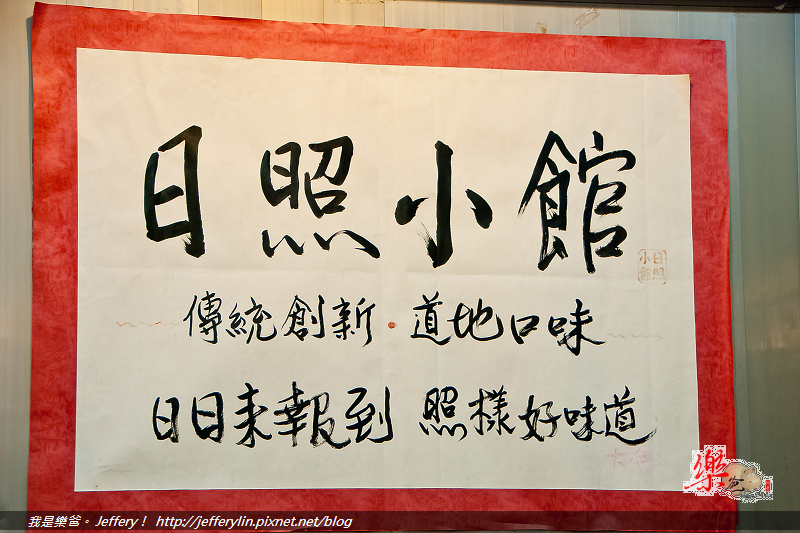 日照小館
日照小館
傳統創新·道地口味
日日来報到 照樣好味道
樂爸
我是樂爸。Jeffery! http://jefferylin.pixnet.net/blog